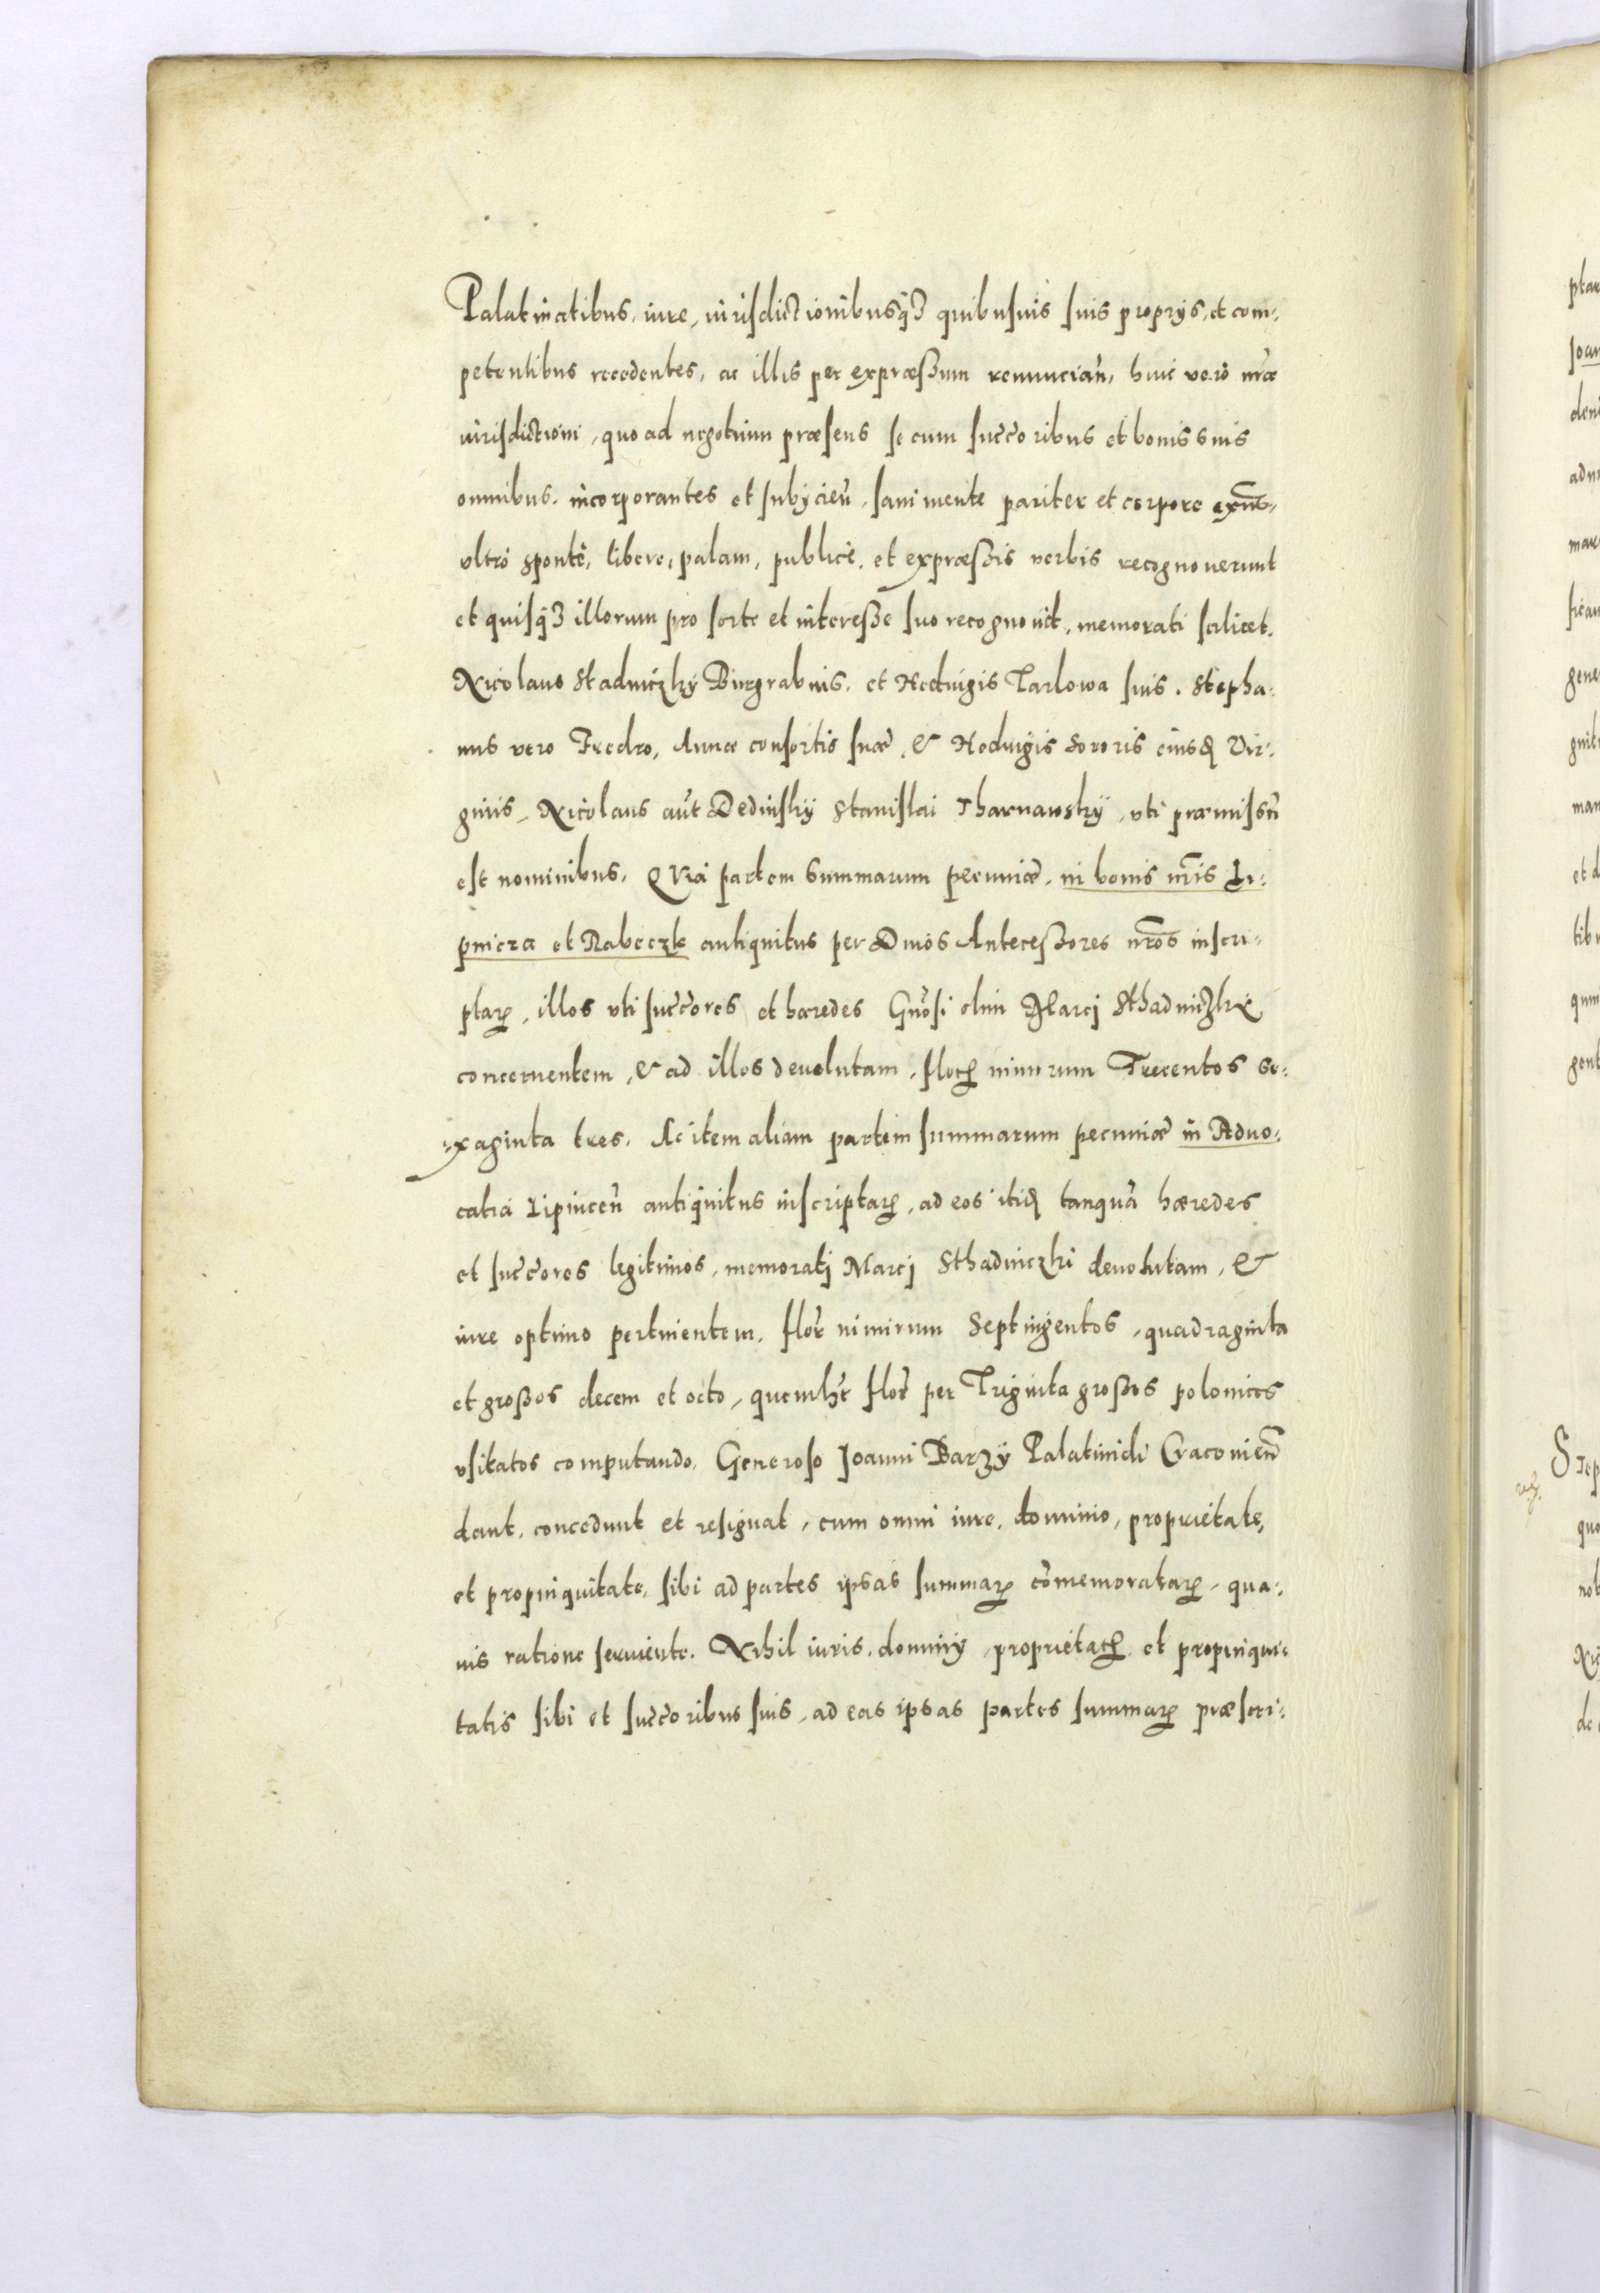 Palatinatibus, iure, iurisdictionibusq3 quibusuis suis proprijs, et com-
petentibus recedentes, ac illis per expræssum renuncian̄, huic vero nr̄æ
iurisdictioni, quo ad negotium præsens se cum succ̄oribus et bonis suis
omnibus, incorporantes et subijcien̄, sani mente pariter et corpore exn̄tes,
vltro sponte, libere, palam, publice, et expræssis verbis recognouerunt
et quisq3 illorum pro sorte et interesse suo recognouit, memorati scilicet,
Nicolaus Stadniczky Burgrabius, et Heduigis Tarlowa suis. Stepha-
nus vero Fredro, Annæ consortis suæ, & Heduigis sororis eiusd̄ Vir-
ginis, Nicolaus aūt Dedinsky Stanislai Tharnawsky, vti præmissū
est nominibus. Quia partem summarum pecuniæ, in bonis nr̄is Li-
pnicza et Rabeczk antiquitus per Dnōs Antecessores nr̄os inscri-
ptar̄, illos vti succ̄ores et hæredes Gnōsi olim Marcj Sthadniczky
concernentem, & ad illos deuolutam, flor̄ nimirum Trecentos se-
xaginta tres. Ac item aliam partem summarum pecuniæ in Aduo-
catia Lipnicen̄ antiquitus inscriptar̄, ad eos itid̄ tanquā hæredes
et succ̄ores legitimos, memoratj Marcj Sthadniczki deuolutam, &
iure optimo pertinentem, flor̄ nimirum Septingentos, quadraginta
et grossos decem et octo, quemlib̄t flor̄ per Triginta grossos polonicos
vsitatos computando, Generoso Joanni Barzy Palatinidi Cracouien̄
dant, concedunt et resignāt, cum omni iure, dominio, proprietate,
et propinquitate, sibi ad partes ipsas summar̄ cōmemoratar̄, qua-
uis ratione seruiente. Nihil iuris, dominij, proprietatis et propinqui-
tatis sibi et succ̄oribus suis, ad eas ipsas partes summar̄ præscri-